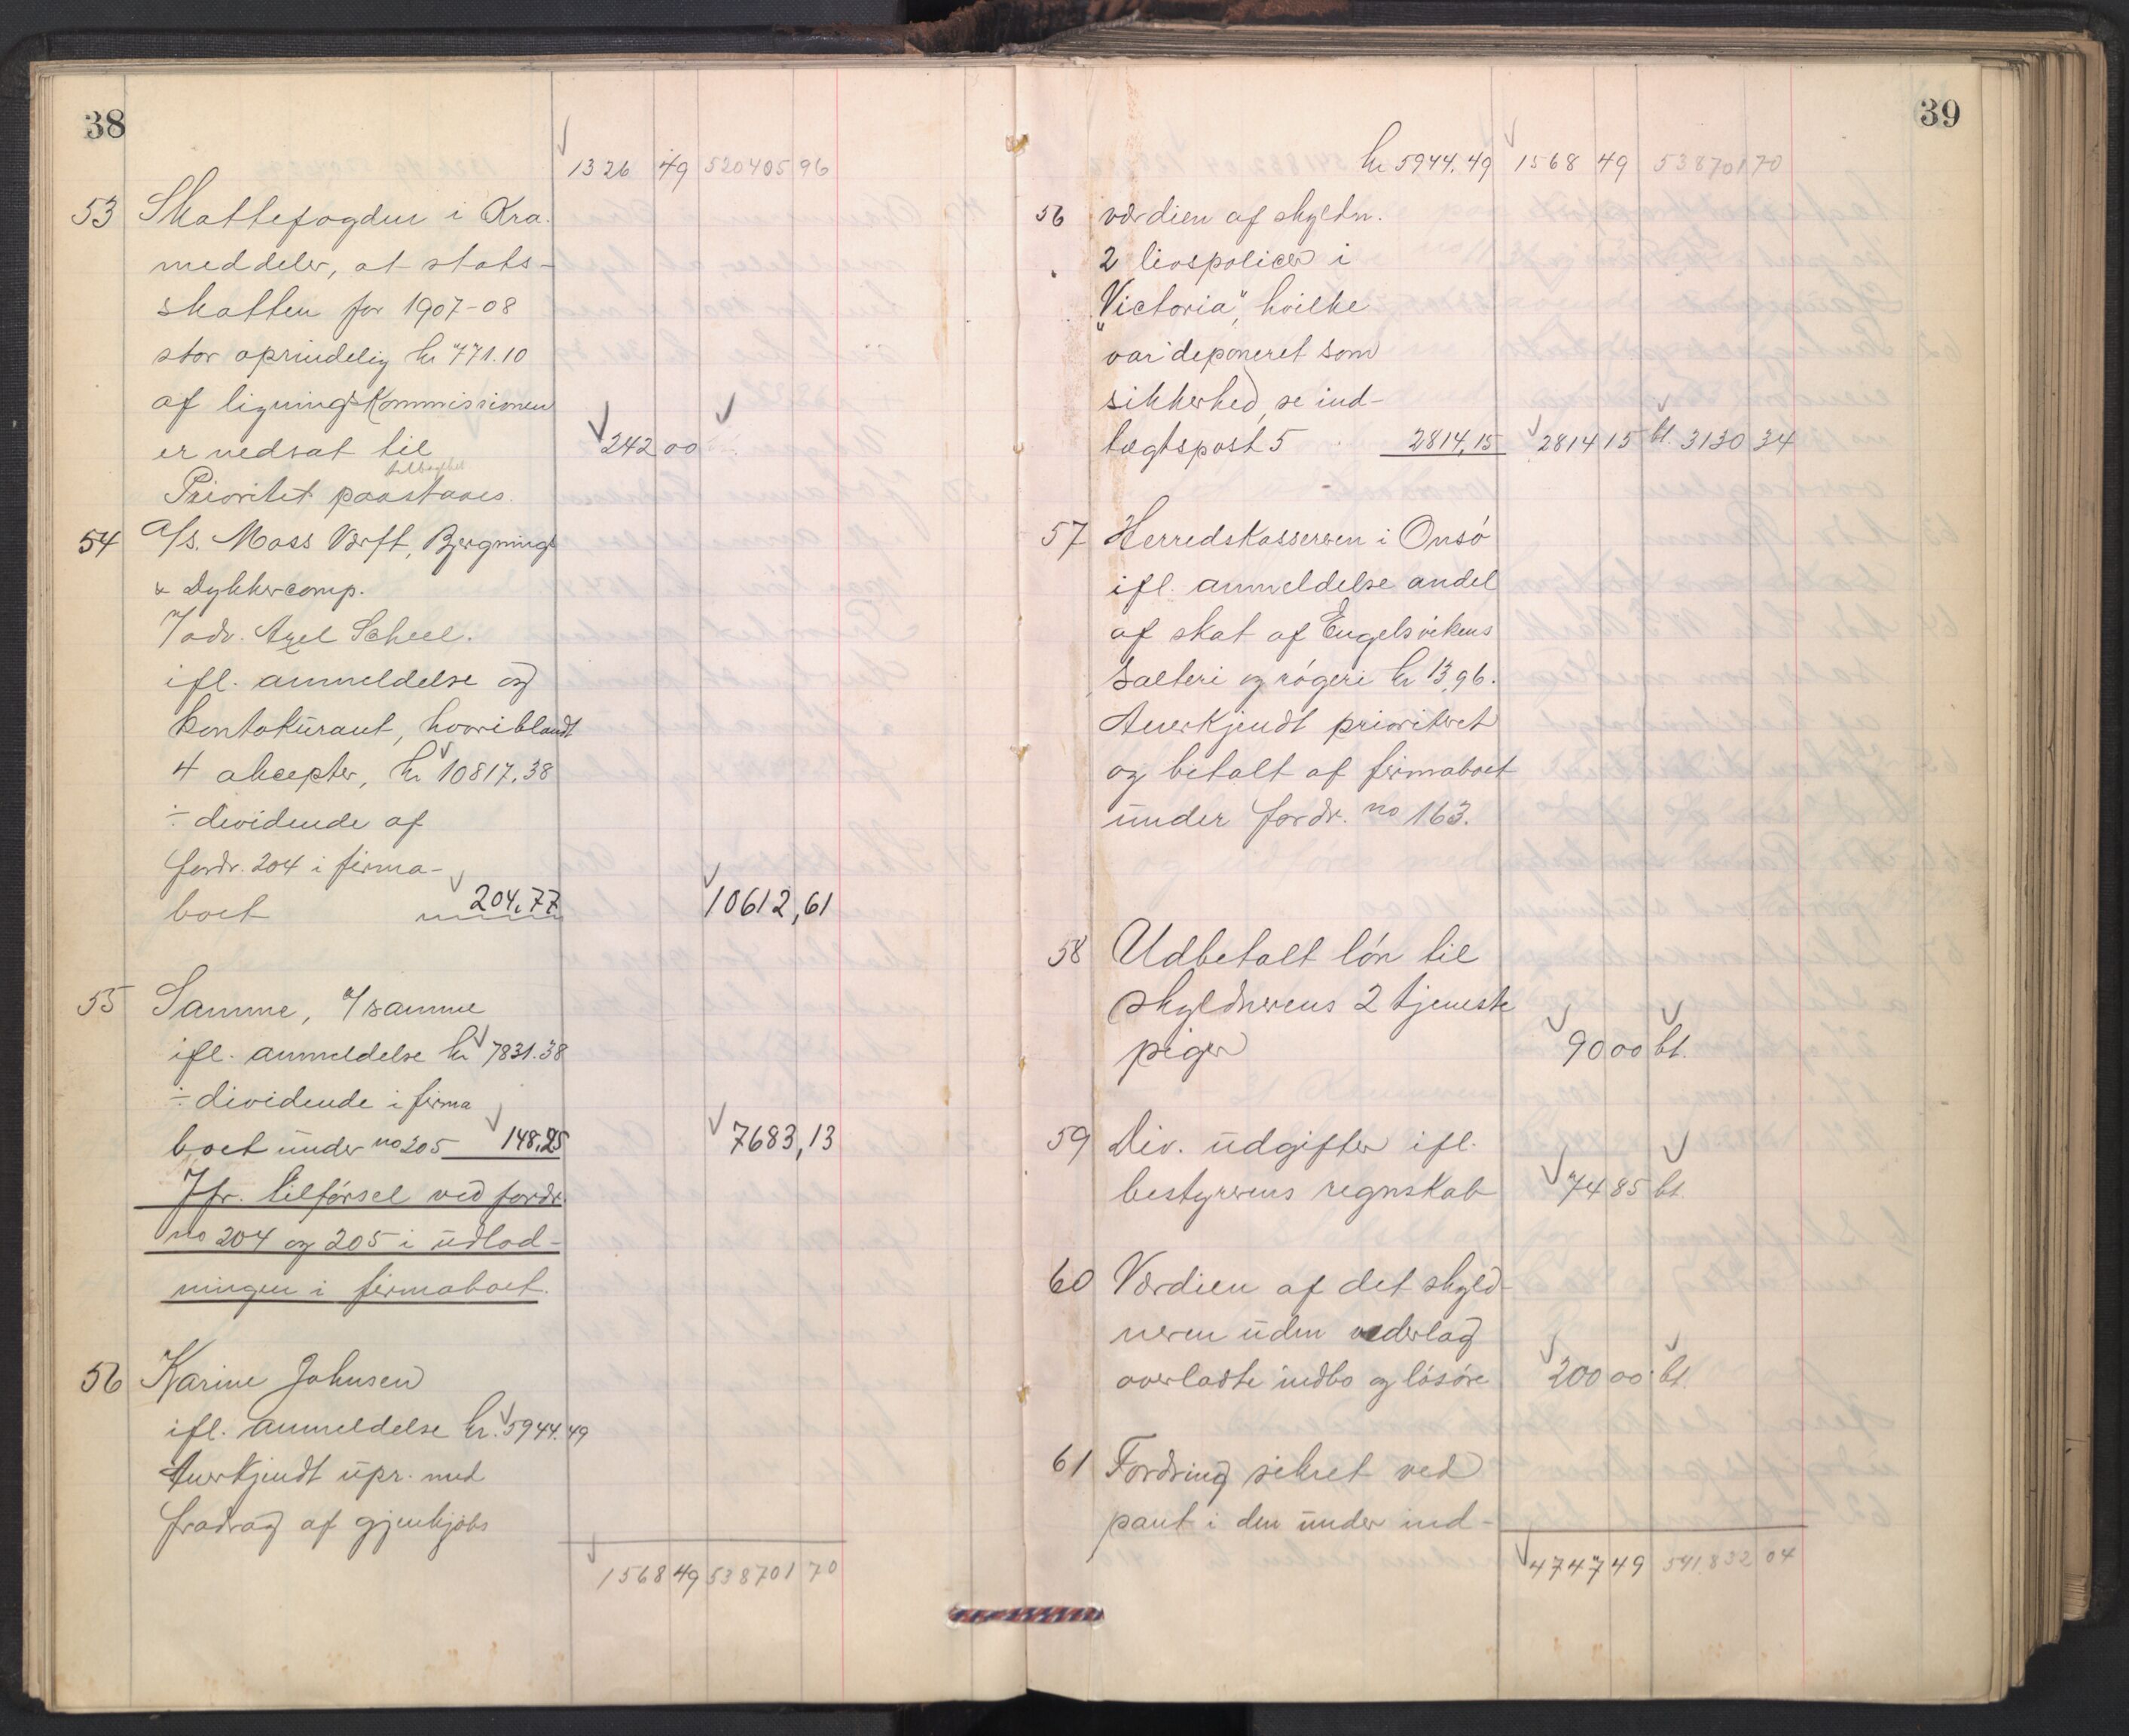 38
1326 49 520405 96
53 Skattefogden i Kra.
meddeler, at stats-
skatten for 1907-08
stor oprindelig kr 771.10
af ligningskommissionen
er nedsat til 242 00
Prioritet paastaaes.
54 A/s. Moss Værft, Bjergnings
& Dykkercomp.
v/ adv. Axel Scheel.
ifl. anmeldelse og
kontokurant, hvoriblandt
4 akcepter, kr 10817.38
÷ dividende af
fordr. 204 i firma-
boet 204.77 10612,61
55 Samme, v/ samme
ifl. anmeldelse kr 7831.38
÷ dividende i firma
boet under no 205 148.25 7683,13
Jfr. tilførsel ved fordr.
no 204 og 205 i udlod-
ningen i firmaboet.
56 Karine Johnsen
ifl. anmeldelse kr. 5944.49
Anerkjendt upr. med
fradrag af gjenkjøbs
1568 49 538701 70
39
kr 5944.49 1568 49 538701 70
56 værdien af skyldn.
2 livspolicer i
"Victoria", hvilke
var deponeret som
sikkerhed, se ind-
tægtspost 5 2814,15 2814 15 bt. 3130 34
57 Herredskassereren i Onsø
ifl. anmeldelse andel
af skat af Engelsvikens
Salteri og røgeri kr 13,96.
Anerkjendt prioriteret
og betalt af firmaboet
under fordr. no 163.
58 Udbetalt løn til
skyldnerens 2 tjeneste
piger 90 00 bt.
59 Div. udgifter ifl.
bestyrerens regnskab 74 85 bt.
60 Værdien af det skyld-
neren uden vederlag
overladte indbo og løsøre 200 00 bt.
61 Fordring sikret ved
pant i den under ind-
4747 49 541832 04